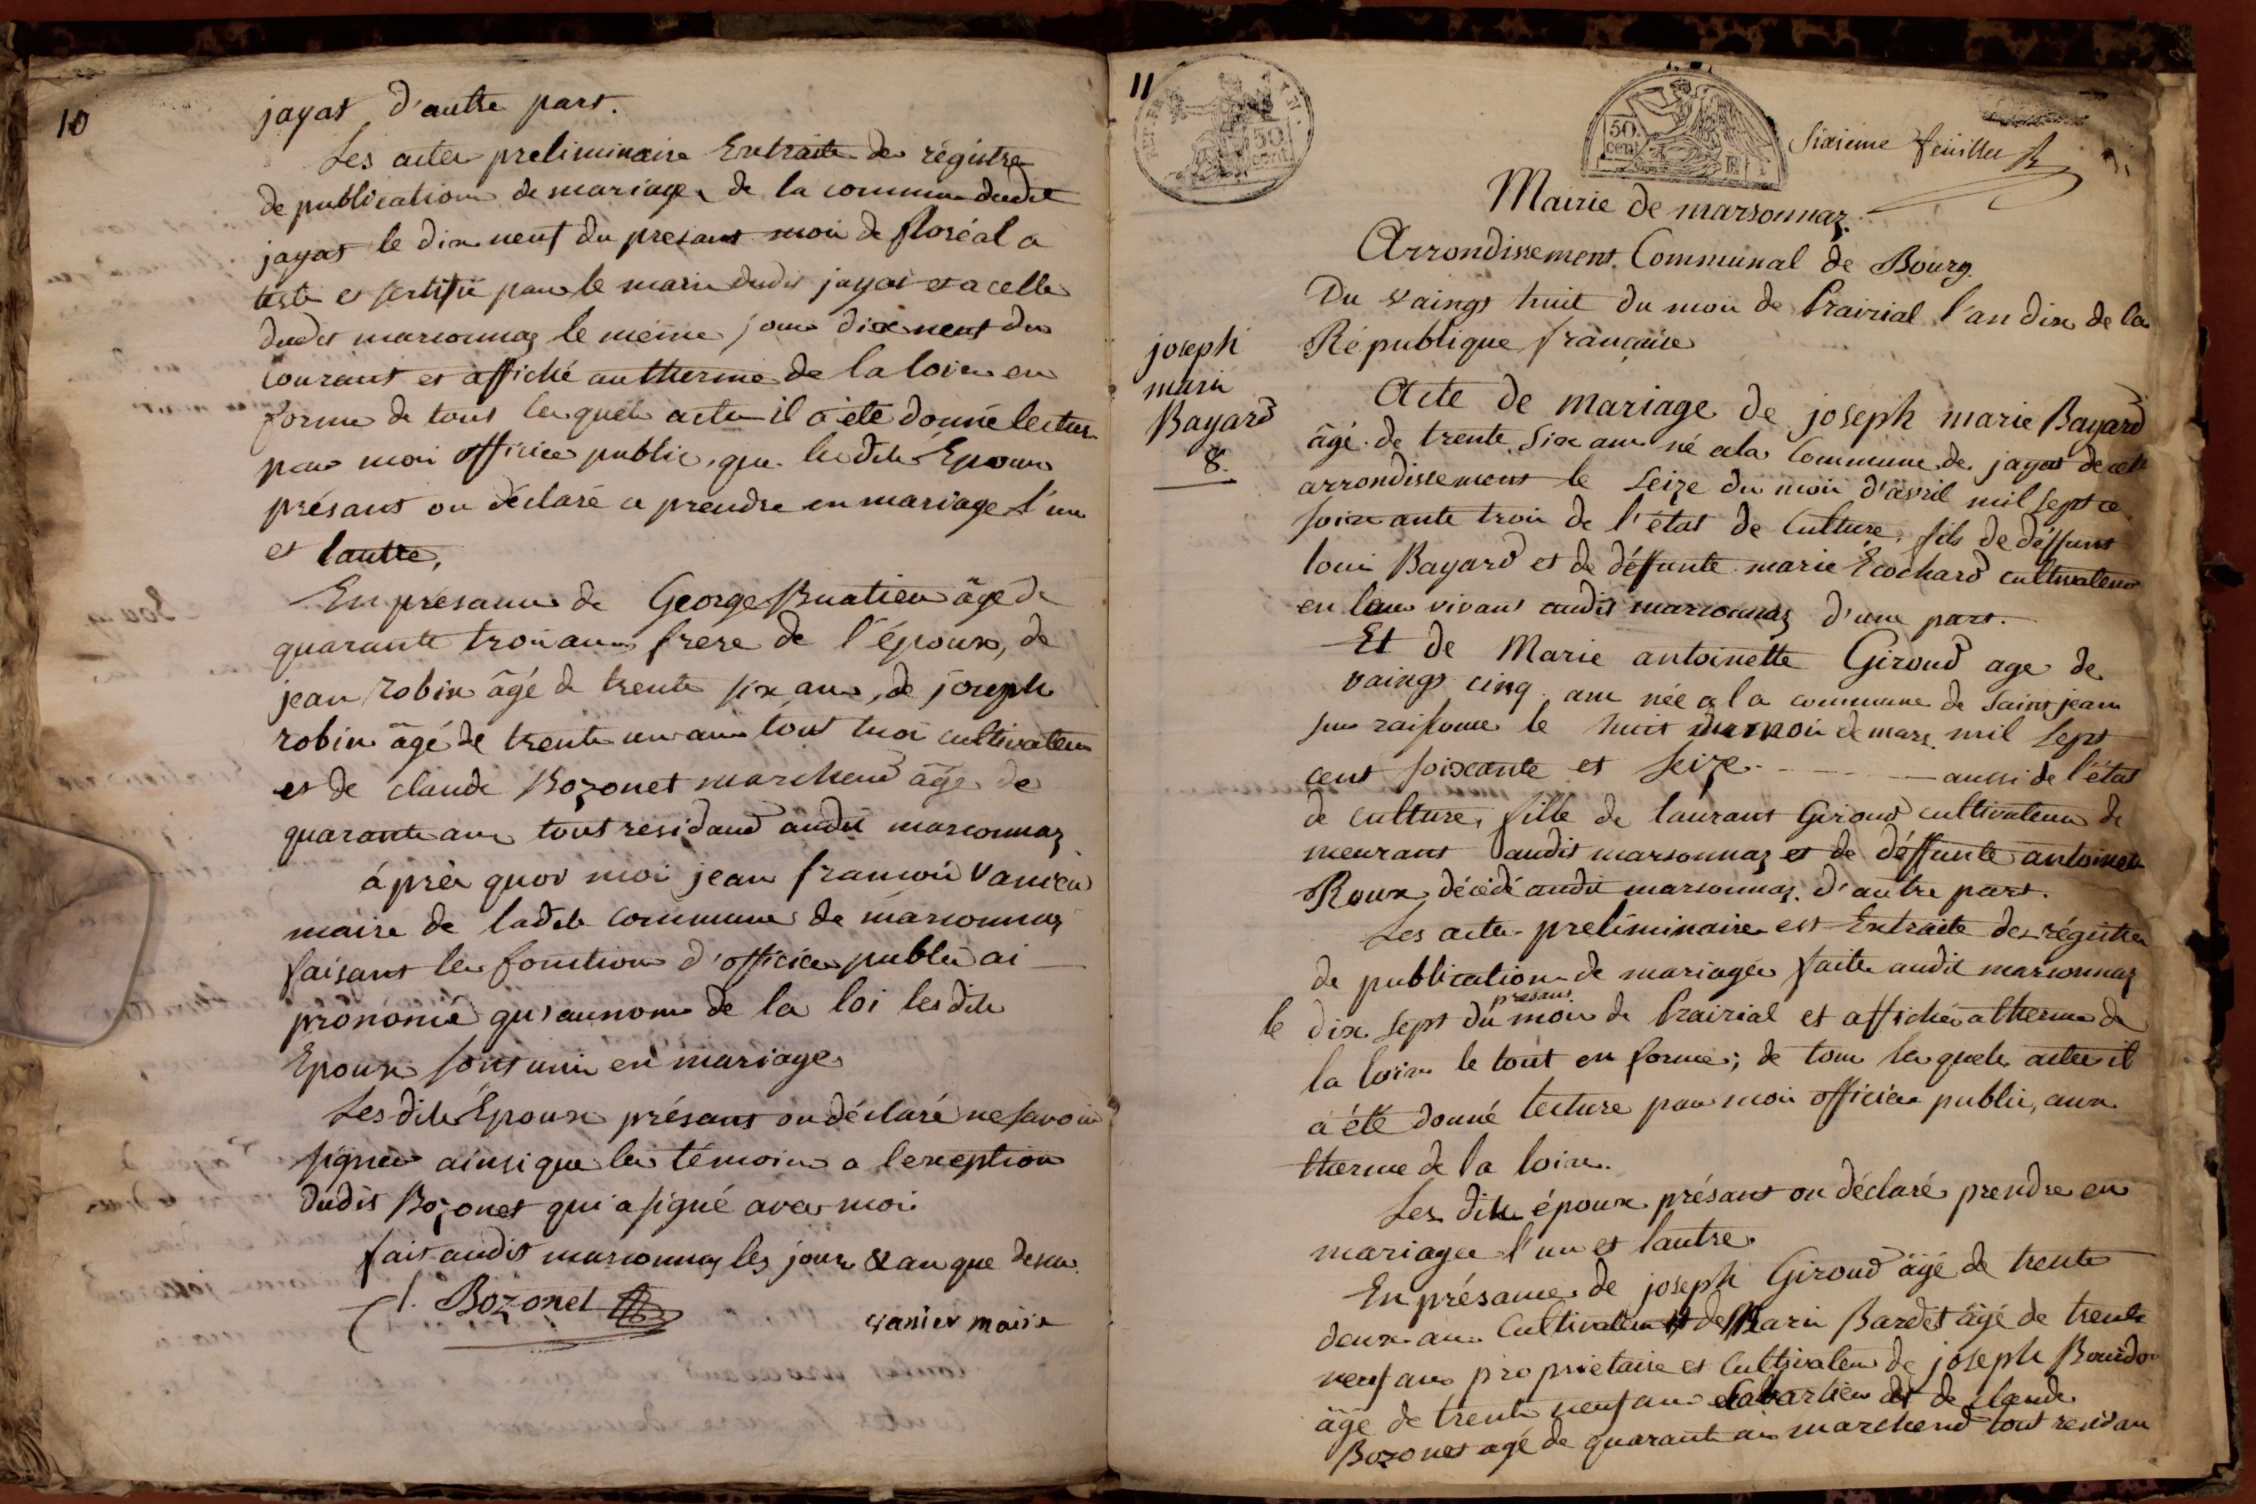 10
jayat d'autre part.
Les actes preliminaire Extraite des régistre
de publication de mariage de la commune dudit
jayat le dix neuf du presant mois de floréal a
teste et sertifié par le maire dudit jayat et a celle
dudit marsonnaz le meme jour dix neuf du
courant et affiché au therme de la loix en
forme de tous les quels actes il a été donné lecture
par moi officier public, que les dits Epoux
présant on déclaré a prendre en mariage l'un
et lautre,
En presance de George Buatier âgé de
quarante trois ans frere de l'époux, de
jean robin âgé de trente six ans, de joseph
robin âgé de trente un ans tout trois cultivateur
et de claude Bozonet marchend âgé de
quarante ans tout residand audit marsonnaz
âprès quoy moi jean francois Vanier
maire de ladite commune de marsonnaz
faisant les fonction d'officier public ai
prononcé qu'au nom de la loi les dits
Epoux sont unis en mariage
Les dits Epoux présant on déclaré ne savoir
signer ainsi que les témoins a lexception
dudit Bozonet qui a signé avec moi
fait audit marsonnaz les jour & an que dessus
Cl. Bozonet
vanier maire
11
50 cent
50. cent
Sixieme feuillet
Mairie de marsonnaz.
Arrondissement Communal de Bourg.
Du vaingt huit du mois de Prairial l'an dix de la
République française
joseph
marie
Bayard
8.
Acte de mariage de joseph marie Bayard
âgé de trente six ans né a la Commune de jayat de cett
arrondissement le seize du mois d'avril mil sept ce
soixante trois de l'état de Culture, fils de déffunt
louis Bayard et de déffunte marie Ecochard cultivateur
en leur vivant audit marsonnaz d'une part.
Et de Marie antoinette Giroud age de
vaingt cinq ans née a la commune de saint jean
sur raisouse le huit du mois de mars mil sept
cent soixante et seize. aussi de l'état
de culture, fille de laurant Giroud cultivateur de
meurant audit marsonnaz et de déffunte antoinette
Roux décédé audit marsonnaz. d'autre part.
Les acte preliminaire est Extraite des régistre
de publication de mariages faite audit marsonnaz
presant
le dix sept du mois de Prairial et affiché a therme de
la loix le tout en forme; de tous les quels actes il
a été donné lecture par moi officier public, aux
therme de la loix.
Les dits époux présant on déclaré prendre en
mariage l'un et lautre.
En présance de joseph Giroud âgé de trente
deux ans cultivateur de Marie Bardet âgé de trente
neuf ans proprietaire et cultivateur de joseph Bourdon
âgé de trente neuf ans Cabartier et de claude
Bozonet agé de quarante ans marchend tout residan